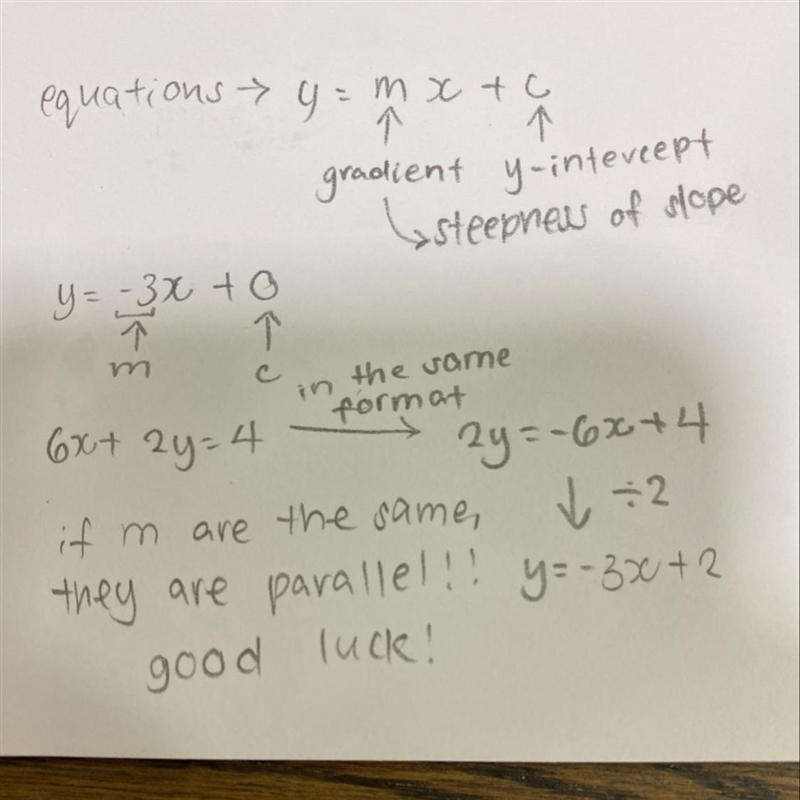 equations → y = mx + c
↑ ↑
gradient y-intercept
↳ steepness of slope
y = -3x + 0
↑ ↑
m c
in the same
format
6x + 2y = 4 → 2y = -6x + 4
↓ ÷2
if m are the same,
they are parallel!! y = -3x + 2
good luck!